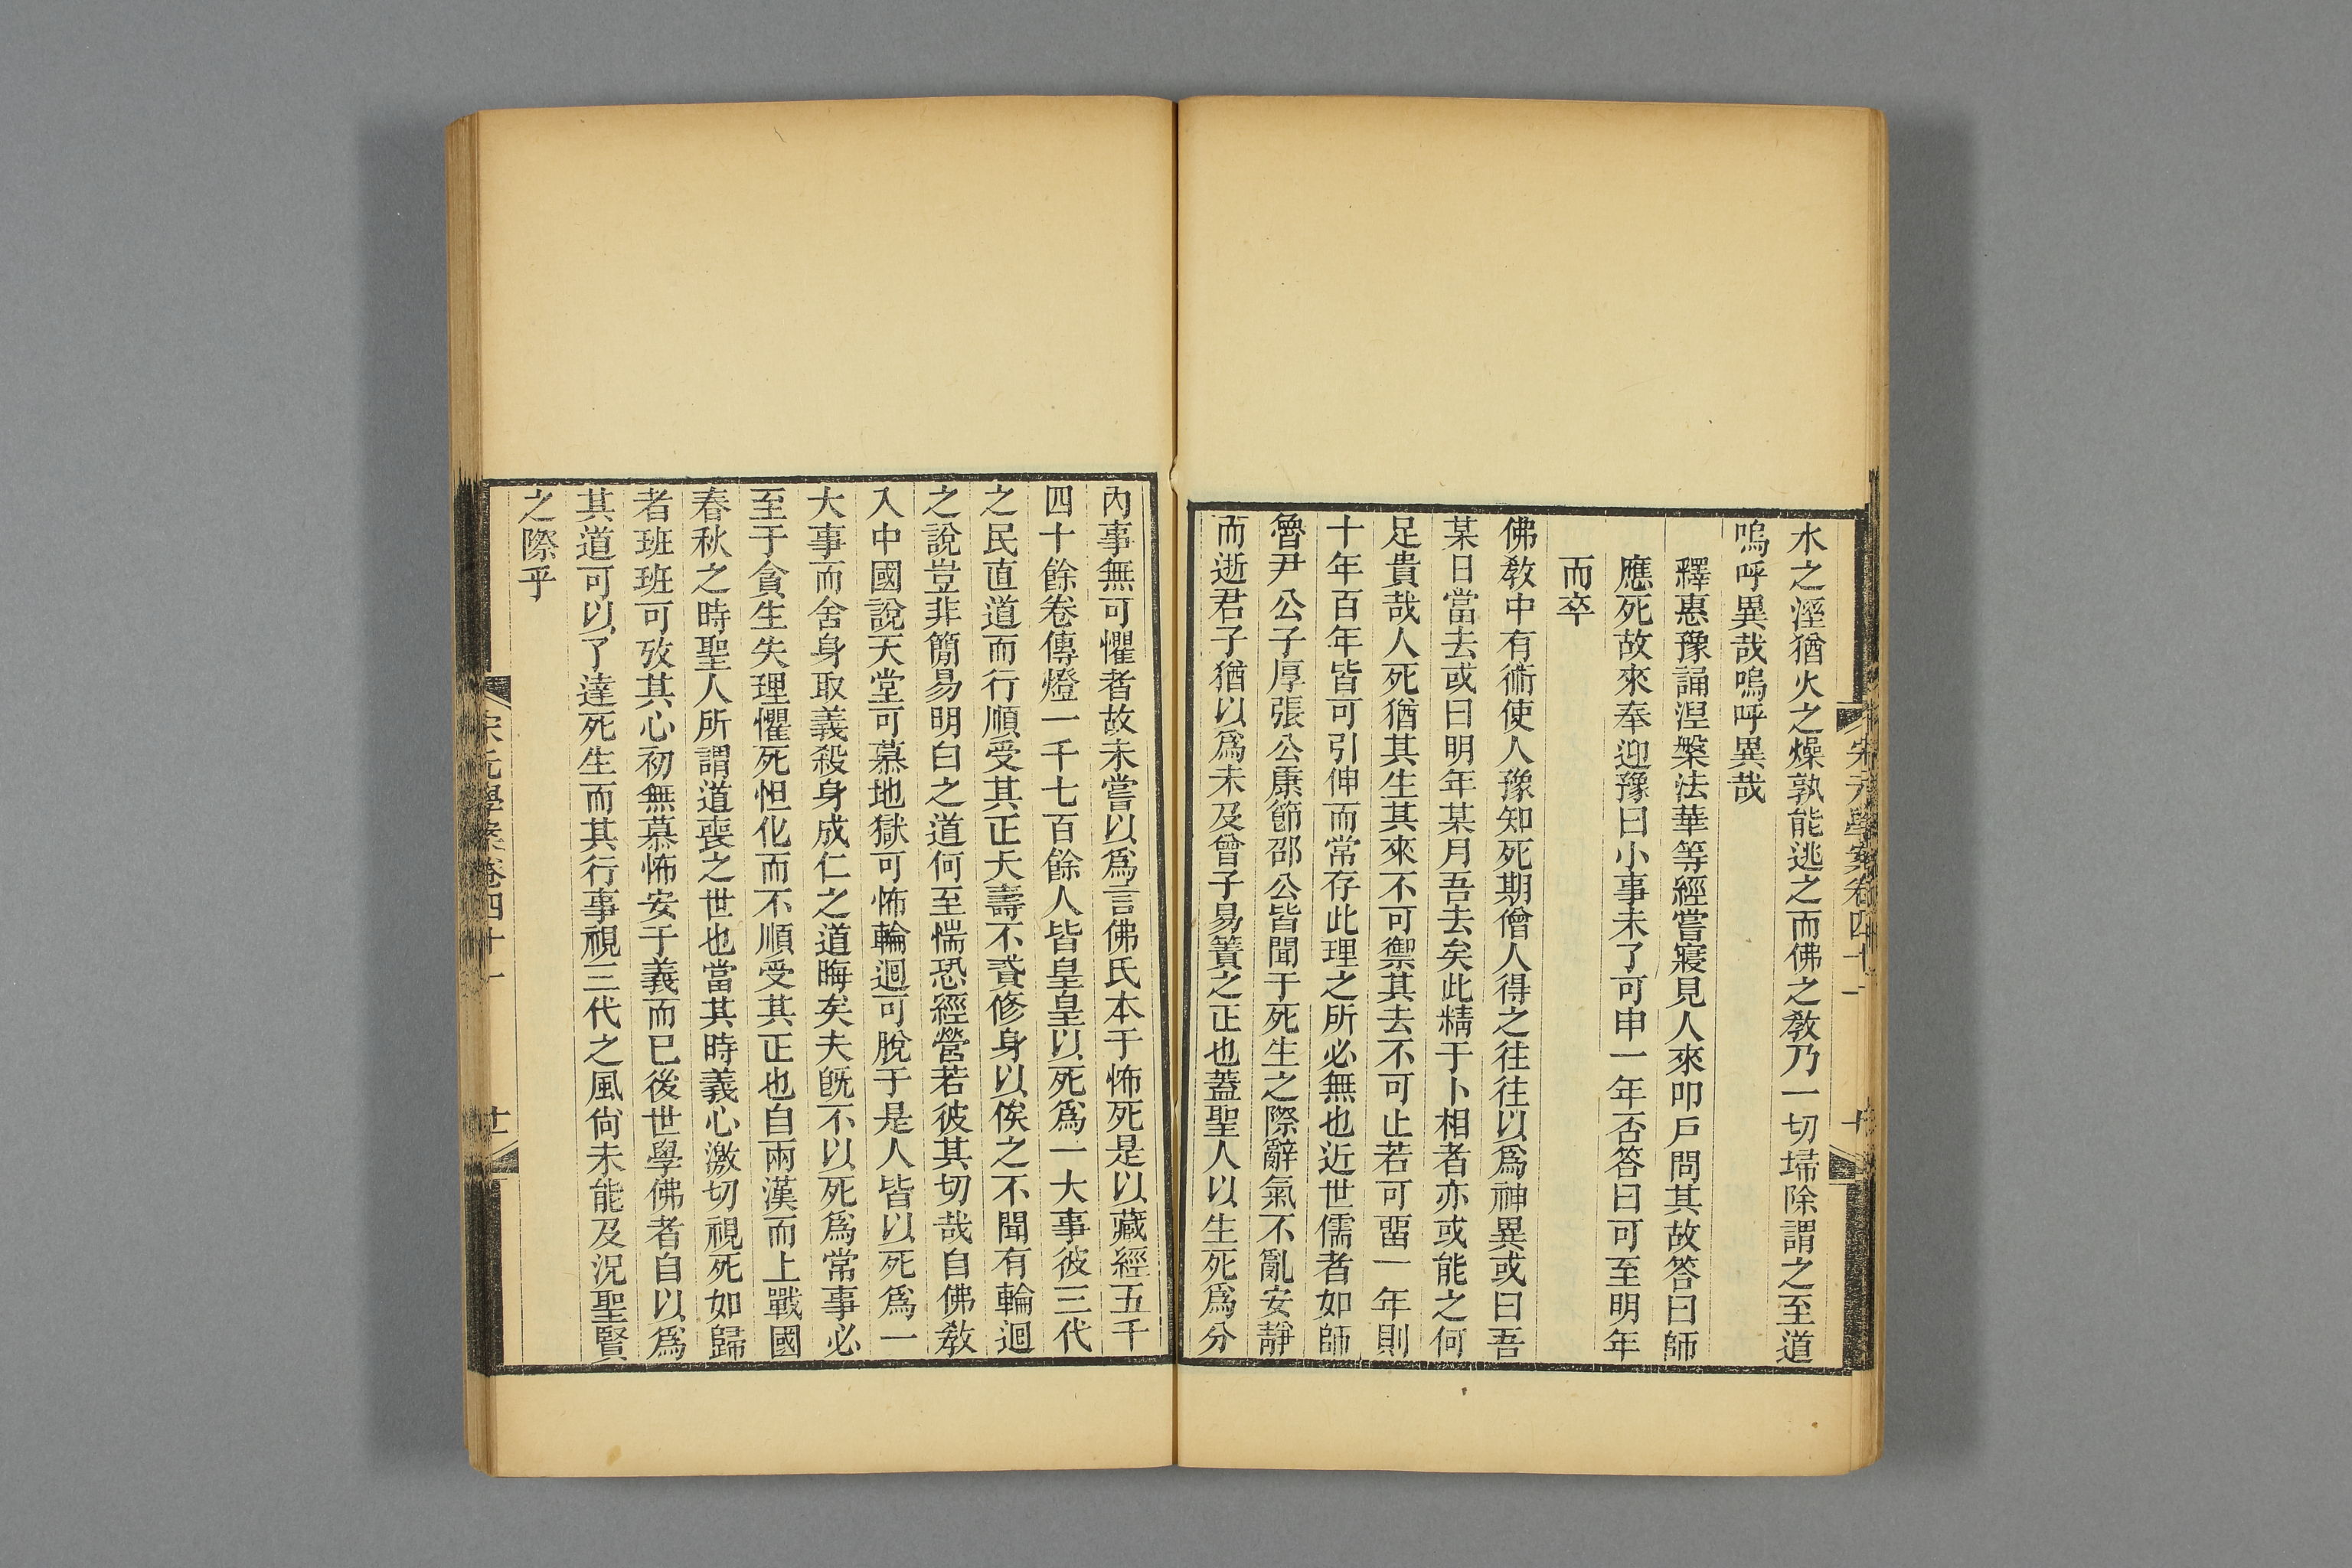 水之溼猶火之燥孰能逃之而佛之教乃一切埽除謂之至道
嗚呼異哉嗚呼異哉
釋惠豫誦涅槃法華等經嘗寢見人來叩戶問其故答曰師
應死故來奉迎豫曰小事未了可申一年否答曰可至明年
而卒
佛教中有術使人豫知死期僧人得之往往以爲神異或曰吾
某日當去或曰明年某月吾去矣此精于卜相者亦或能之何
足貴哉人死猶其生其來不可禦其去不可止若可畱一年則
十年百年皆可引伸而常存此理之所必無也近世儒者如師
魯尹公子厚張公康節邵公皆聞于死生之際辭氣不亂安靜
而逝君子猶以爲未及曾子易簀之正也蓋聖人以生死爲分
宋元學案卷四十一
內事無可懼者故未嘗以爲言佛氏本于怖死是以藏經五千
四十餘卷傳燈一千七百餘人皆皇皇以死爲一大事彼三代
之民直道而行順受其正夭壽不貳修身以俟之不聞有輪迴
之說豈非簡易明白之道何至惴恐經營若彼其切哉自佛教
入中國說天堂可慕地獄可怖輪迴可脫于是人皆以死爲一
大事而舍身取義殺身成仁之道晦矣夫旣不以死爲常事必
至于貪生失理懼死怛化而不順受其正也自兩漢而上戰國
春秋之時聖人所謂道喪之世也當其時義心激切視死如歸
者班班可攷其心初無慕怖安于義而已後世學佛者自以爲
其道可以了達死生而其行事視三代之風尙未能及況聖賢
之際乎
宋元學案卷四十一